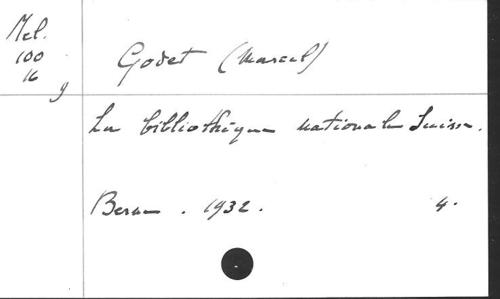 Mel.
100
16
9
Godet (Marcel)
La bibliothèque nationale Suisse.
Berne. 1932. 4.